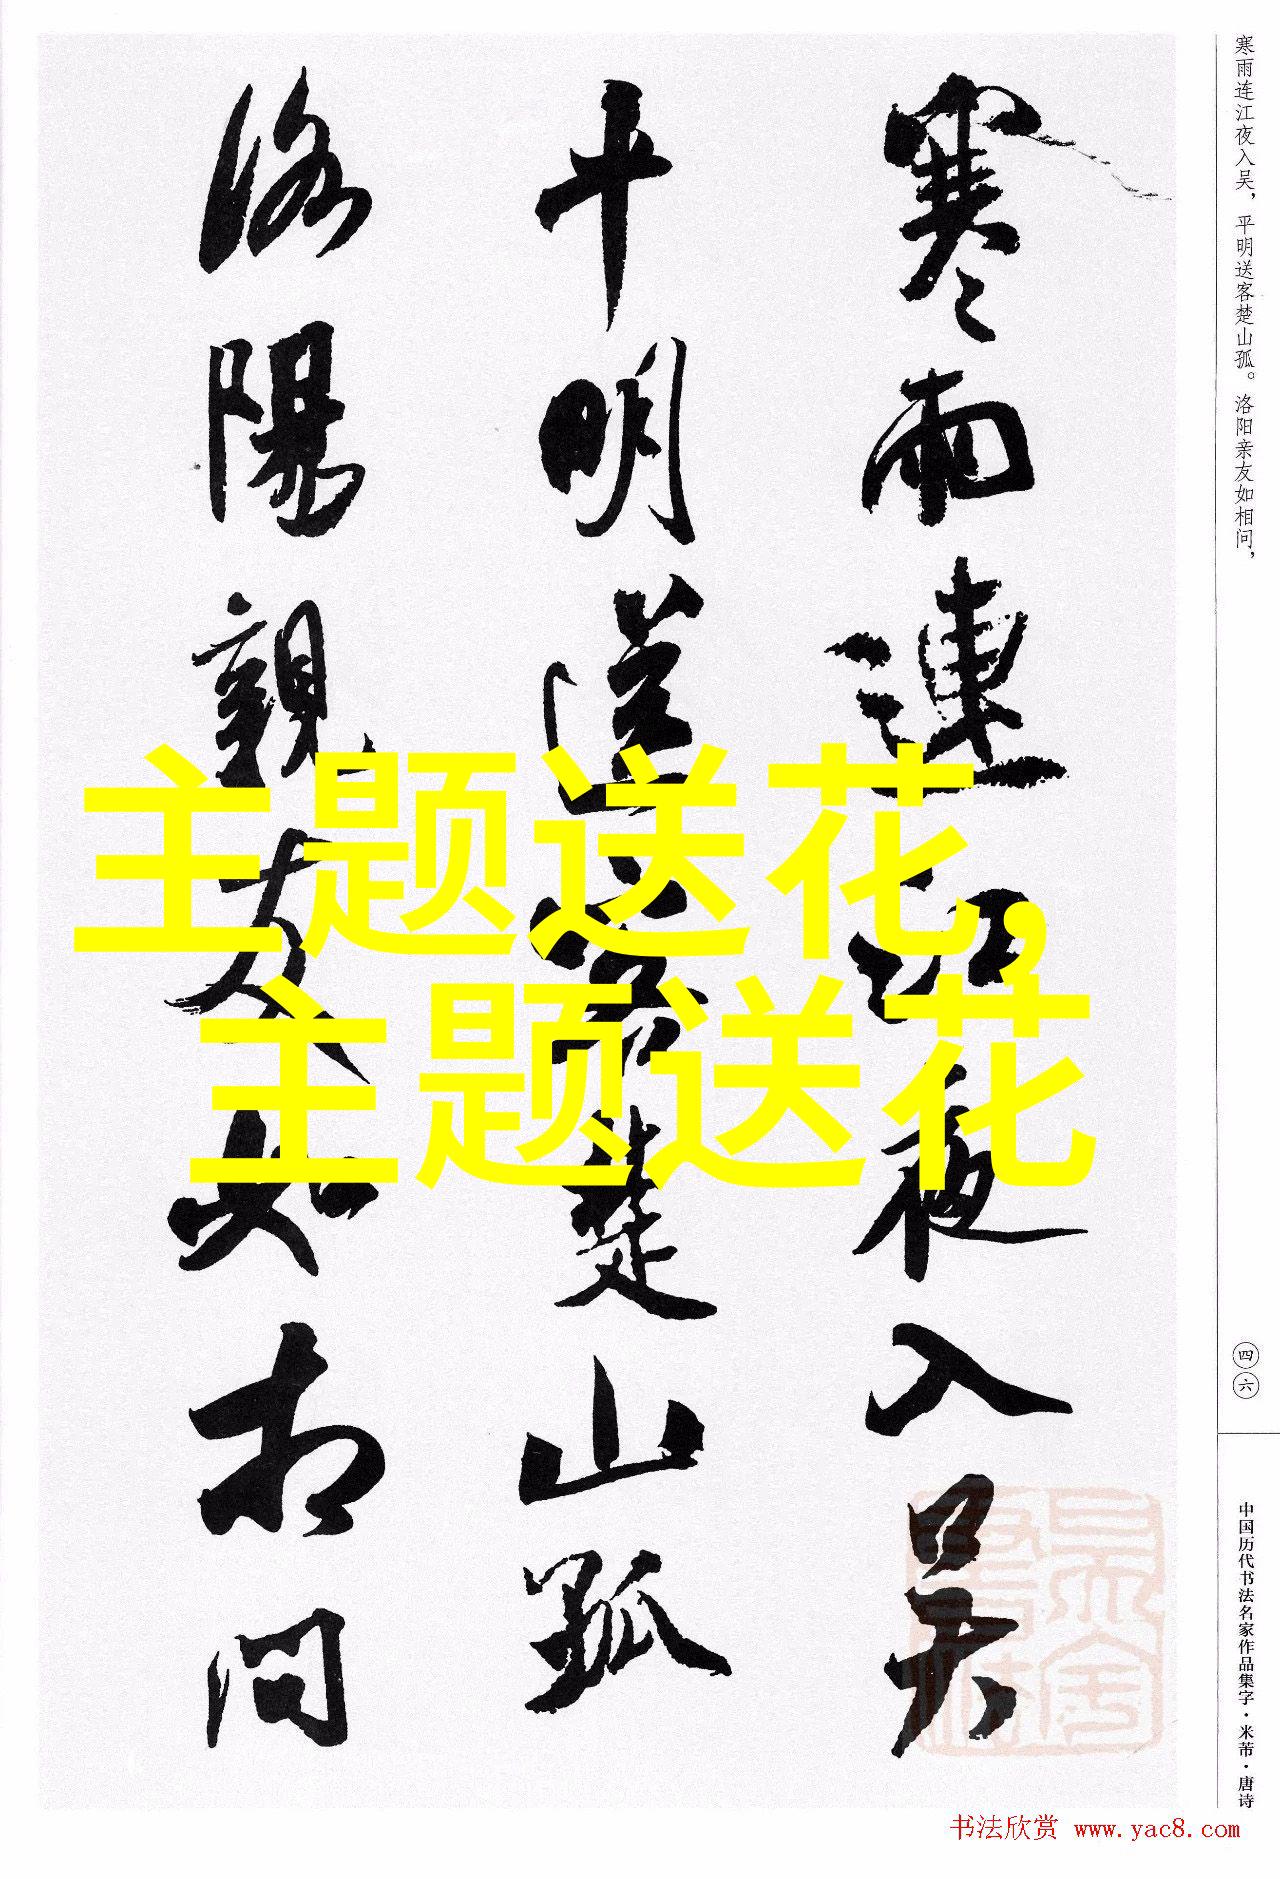 寒雨連江夜入吴
平明送客楚山孤
洛陽親友如相问
主题送花,
主题送花
寒雨连江夜入吴，平明送客楚山孤。洛阳亲友如相问，
四六
中国历代书法名家作品集字·米芾·唐诗
书法欣赏 www.yac8.com